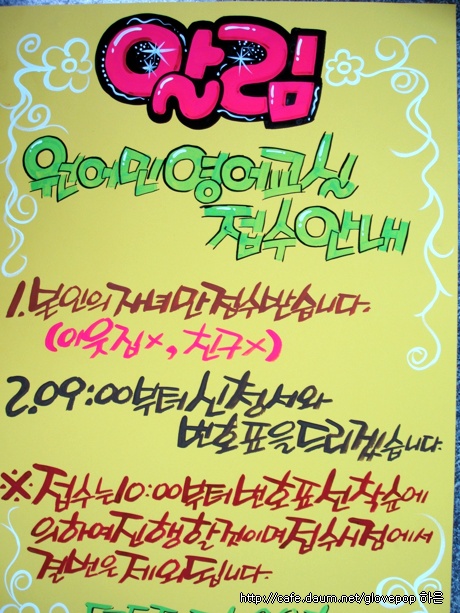 알림
원어민영어교실
접수안내
1. 본인의 자녀만 접수받습니다.
(이웃집×, 친구×)
2. 09:00부터 신청서와
번호표을 드리겠습니다.
※ 접수는 10:00부터 번호표 선착순에
의하여 진행할것이며 접수시점에서
결번은 제외됩니다.
http://cafe.daum.net/glovepop 하은